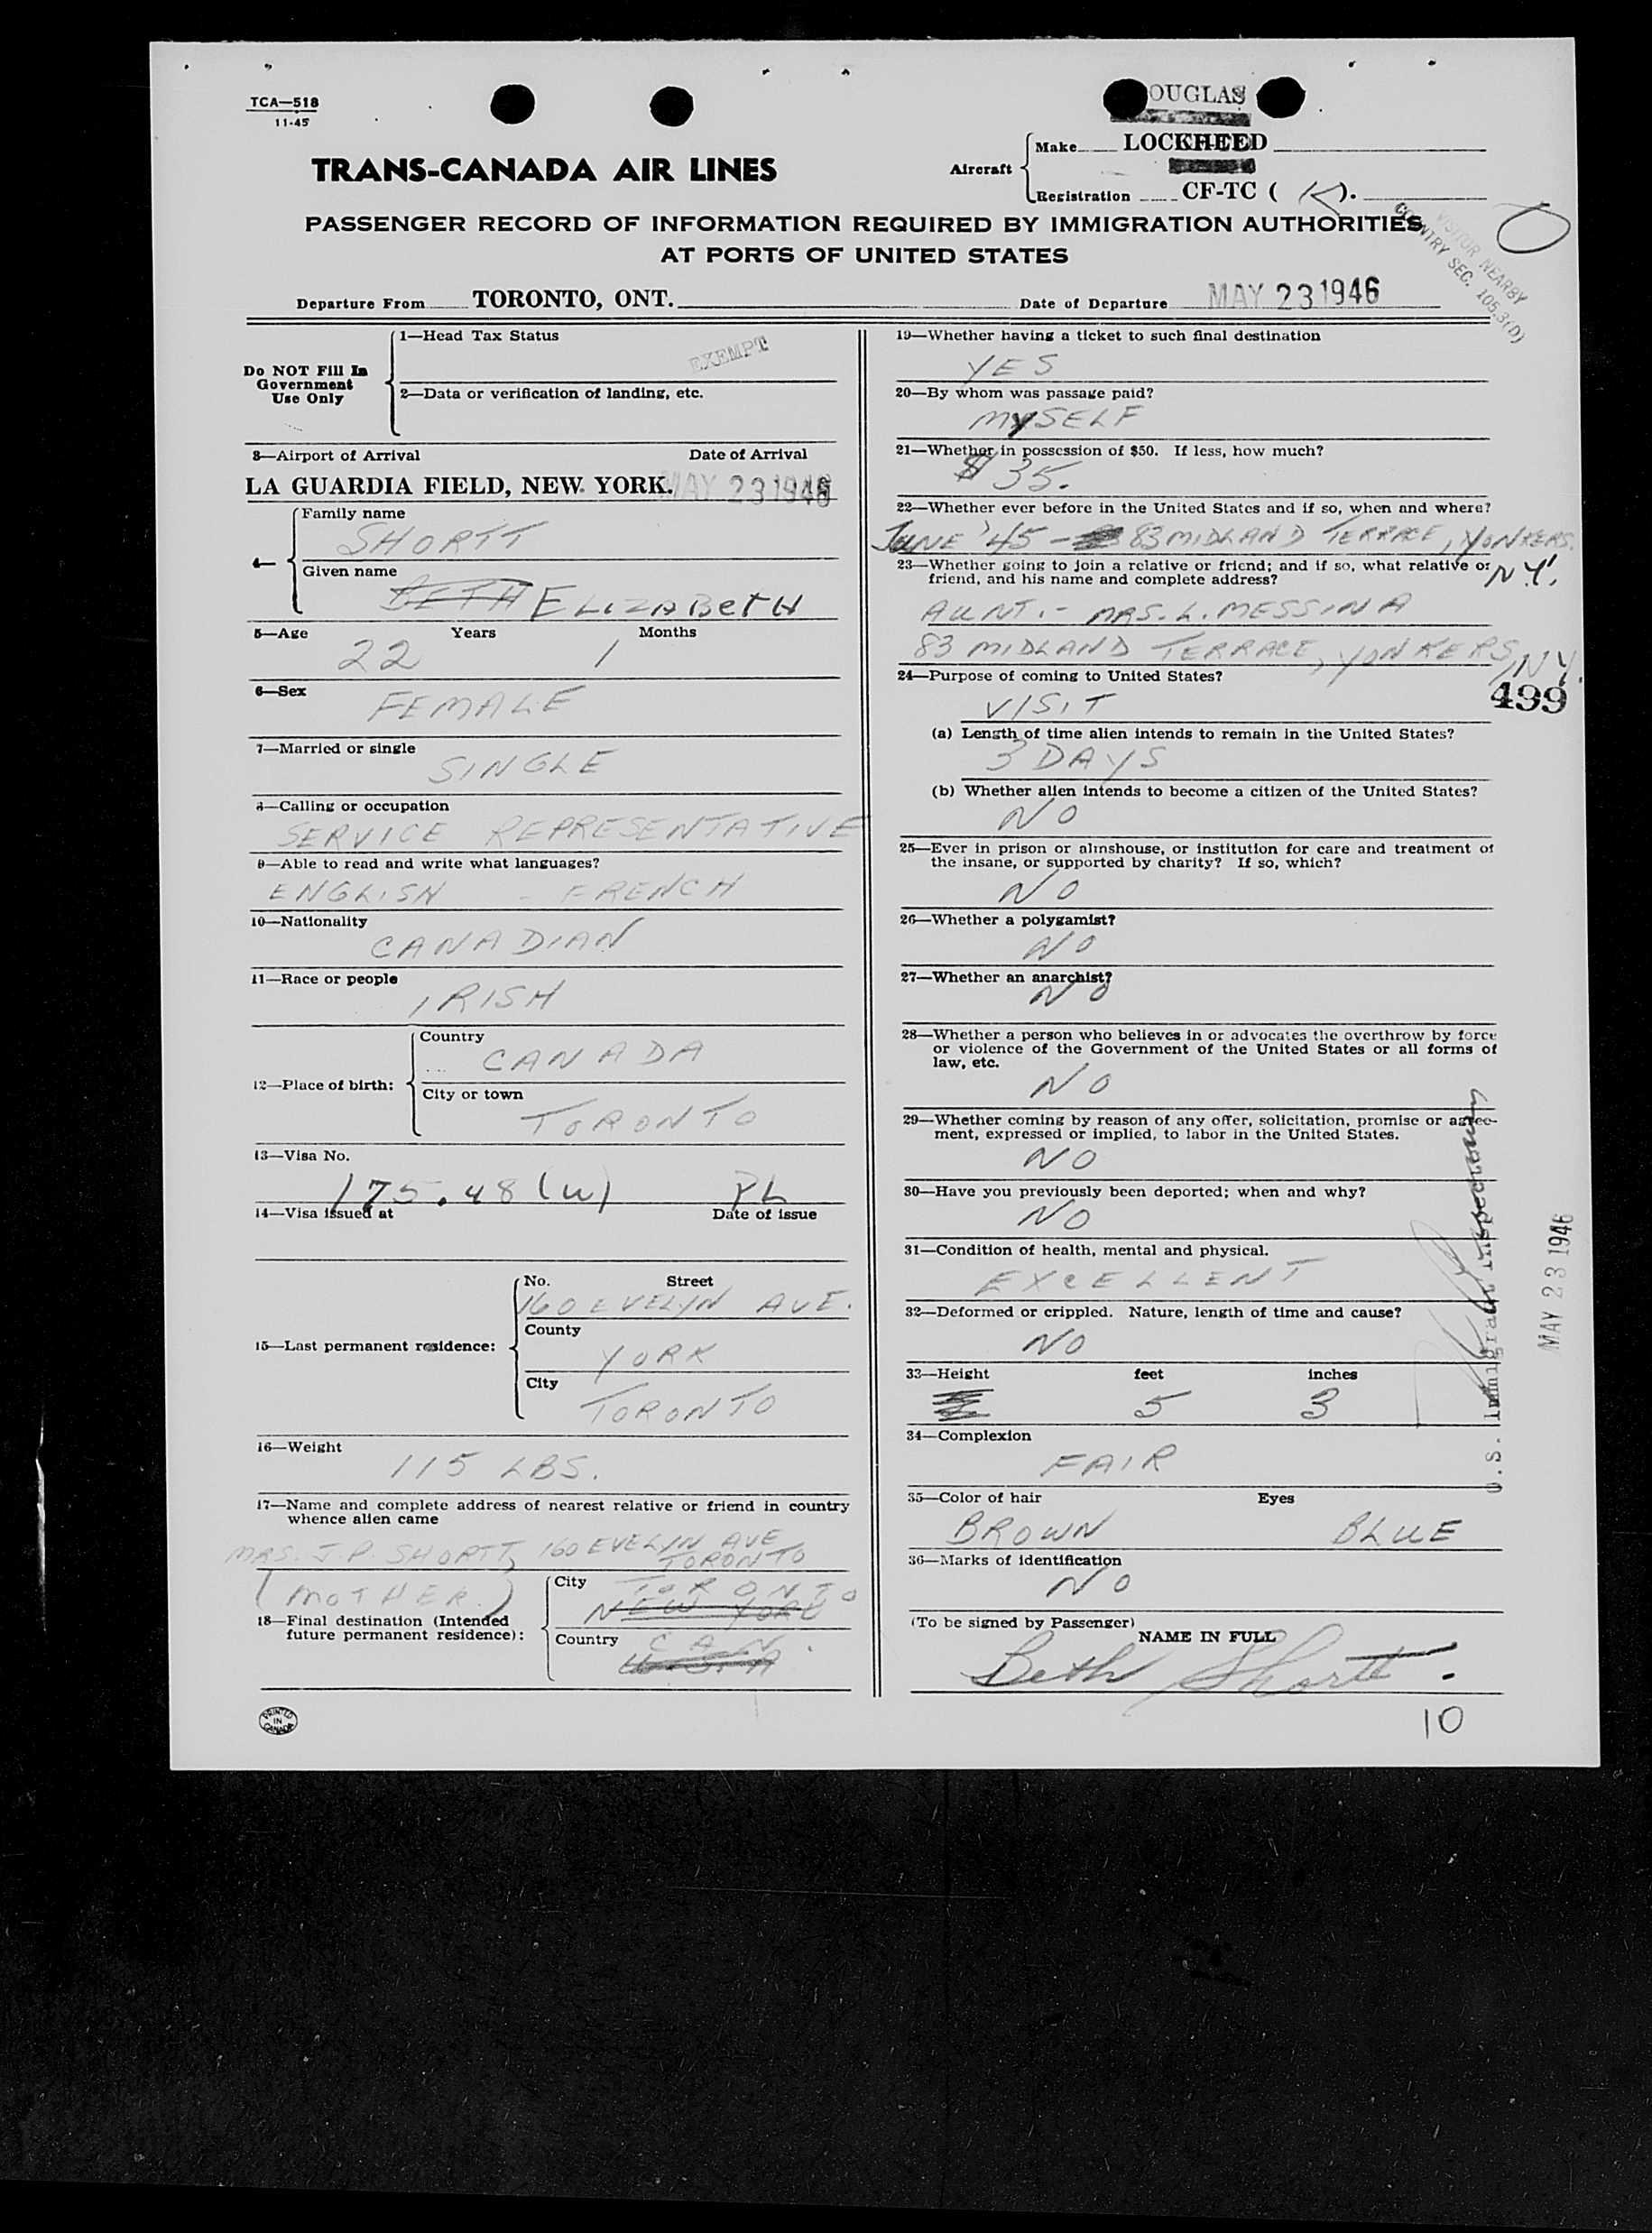 TCA—518
11-45
DOUGLAS
TRANS-CANADA AIR LINES
Aircraft
Make LOCKHEED
Registration CF-TC ( K ).
PASSENGER RECORD OF INFORMATION REQUIRED BY IMMIGRATION AUTHORITIES
AT PORTS OF UNITED STATES
VISITOR NEARBY
COUNTRY SEC. 105.3(D)
Departure From TORONTO, ONT. Date of Departure MAY 23 1946
Do NOT Fill In
Government
Use Only
1—Head Tax Status
EXEMPT
2—Data or verification of landing, etc.
3—Airport of Arrival Date of Arrival
LA GUARDIA FIELD, NEW YORK. MAY 23 1946
4—
Family name
SHORTT
Given name
BETH ELIZABETH
5—Age Years Months
22 1
6—Sex
FEMALE
7—Married or single
SINGLE
8—Calling or occupation
SERVICE REPRESENTATIVE
9—Able to read and write what languages?
ENGLISH - FRENCH
10—Nationality
CANADIAN
11—Race or people
IRISH
12—Place of birth:
Country
CANADA
City or town
TORONTO
13—Visa No.
175.48 (W) PL
14—Visa issued at Date of issue
15—Last permanent residence:
No. Street
160 EVELYN AVE.
County
YORK
City
TORONTO
16—Weight
115 LBS.
17—Name and complete address of nearest relative or friend in country
whence alien came
MRS. J.P. SHORTT, 160 EVELYN AVE
TORONTO
(MOTHER)
18—Final destination (Intended
future permanent residence):
City
TORONTO
NEW YORK
Country
CAN.
U.S.A
PRINTED
IN
CANADA
19—Whether having a ticket to such final destination
YES
20—By whom was passage paid?
MYSELF
21—Whether in possession of $50. If less, how much?
$35.
22—Whether ever before in the United States and if so, when and where?
JUNE '45 - 83 MIDLAND TERRACE, YONKERS.
N.Y.
23—Whether going to join a relative or friend; and if so, what relative or
friend, and his name and complete address?
AUNT. - MRS. L. MESSINA
83 MIDLAND TERRACE, YONKERS, N.Y.
24—Purpose of coming to United States?
VISIT
499
(a) Length of time alien intends to remain in the United States?
3 DAYS
(b) Whether alien intends to become a citizen of the United States?
NO
25—Ever in prison or almshouse, or institution for care and treatment of
the insane, or supported by charity? If so, which?
NO
26—Whether a polygamist?
NO
27—Whether an anarchist?
NO
28—Whether a person who believes in or advocates the overthrow by force
or violence of the Government of the United States or all forms of
law, etc.
NO
29—Whether coming by reason of any offer, solicitation, promise or agree-
ment, expressed or implied, to labor in the United States.
NO
30—Have you previously been deported; when and why?
NO
31—Condition of health, mental and physical.
EXCELLENT
32—Deformed or crippled. Nature, length of time and cause?
NO
33—Height feet inches
5 3
34—Complexion
FAIR
35—Color of hair Eyes
BROWN BLUE
36—Marks of identification
NO
U.S. Immigrant Inspector
MAY 23 1946
(To be signed by Passenger)
NAME IN FULL
Beth Shortt.
10